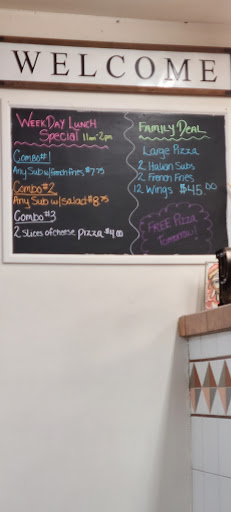 WELCOME
WEEKDAY LUNCH
Special 11am-2pm
Combo#1
Any Sub w/french fries $7.75
Combo#2
Any Sub w/salad $8.75
Combo#3
2 slices of cheese pizza $4.00
FAMILY DEAL
Large Pizza
2 Italian Subs
2 French Fries
12 Wings $45.00
FREE Pizza
Tomorrow!